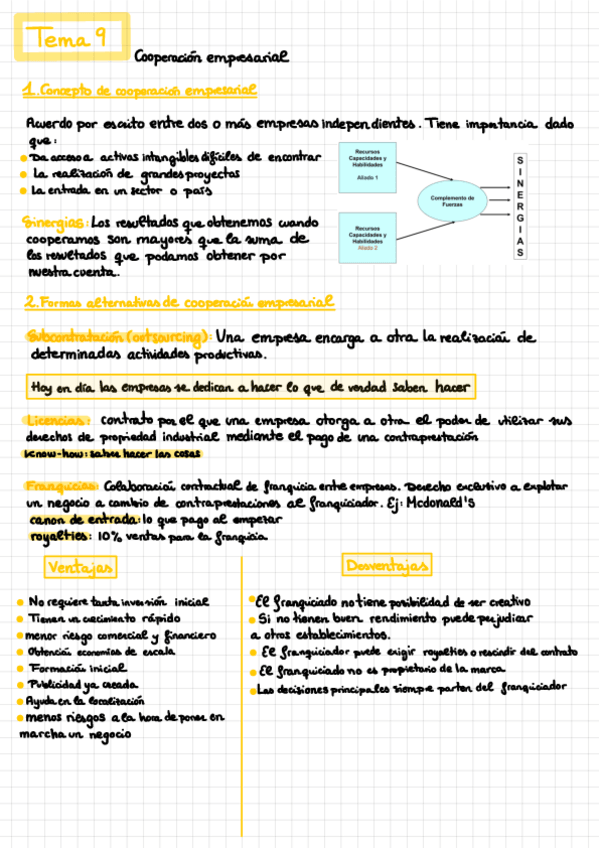 Tema 9
Cooperación empresarial
1. Concepto de cooperación empresarial
Acuerdo por escrito entre dos o más empresas independientes. Tiene importancia dado
que:
Da acceso a activas intangibles difíciles de encontrar
La realización de grandes proyectos
La entrada en un sector o país
Recursos
Capacidades y
Habilidades
Aliado 1
Recursos
Capacidades y
Habilidades
Aliado 2
Complemento de
Fuerzas
S
I
N
E
R
G
I
A
S
Sinergias: Los resultados que obtenemos cuando
cooperamos son mayores que la suma de
los resultados que podamos obtener por
nuestra cuenta.
2. Formas alternativas de cooperación empresarial
Subcontratación (outsourcing): Una empresa encarga a otra la realización de
determinadas actividades productivas.
Hoy en día las empresas se dedican a hacer lo que de verdad saben hacer
Licencias: contrato por el que una empresa otorga a otra el poder de utilizar sus
derechos de propiedad industrial mediante el pago de una contraprestación
Know-how: saber hacer las cosas
Franquicias: Colaboración contractual de franquicia entre empresas. Derecho exclusivo a explotar
un negocio a cambio de contraprestaciones al franquiciador. Ej: Mcdonald's
canon de entrada: lo que pago al empezar
royalties: 10% ventas para la franquicia
Ventajas
No requiere tanta inversión inicial
Tienen un crecimiento rápido
menor riesgo comercial y financiero
Obtención economías de escala
Formación inicial
Publicidad ya creada
Ayuda en la localización
menos riesgos a la hora de poner en
marcha un negocio
Desventajas
El franquiciado no tiene posibilidad de ser creativo
Si no tienen buen rendimiento puede perjudicar
a otros establecimientos.
El franquiciador puede exigir royalties o rescindir del contrato
El franquiciado no es propietario de la marca
Las decisiones principales siempre parten del franquiciador